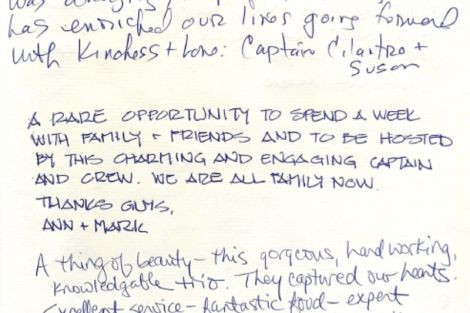 has enriched our lives going forward
with Kindness + Love: Captain Cilaitro +
Susan
A RARE OPPORTUNITY TO SPEND A WEEK
WITH FAMILY + FRIENDS AND TO BE HOSTED
BY THIS CHARMING AND ENGAGING CAPTAIN
AND CREW. WE ARE ALL FAMILY NOW.
THANKS GUYS,
ANN + MARK
A thing of beauty - this gorgeous, hard working,
knowledgable trio. They captured our hearts.
Excellent service - fantastic food - expert